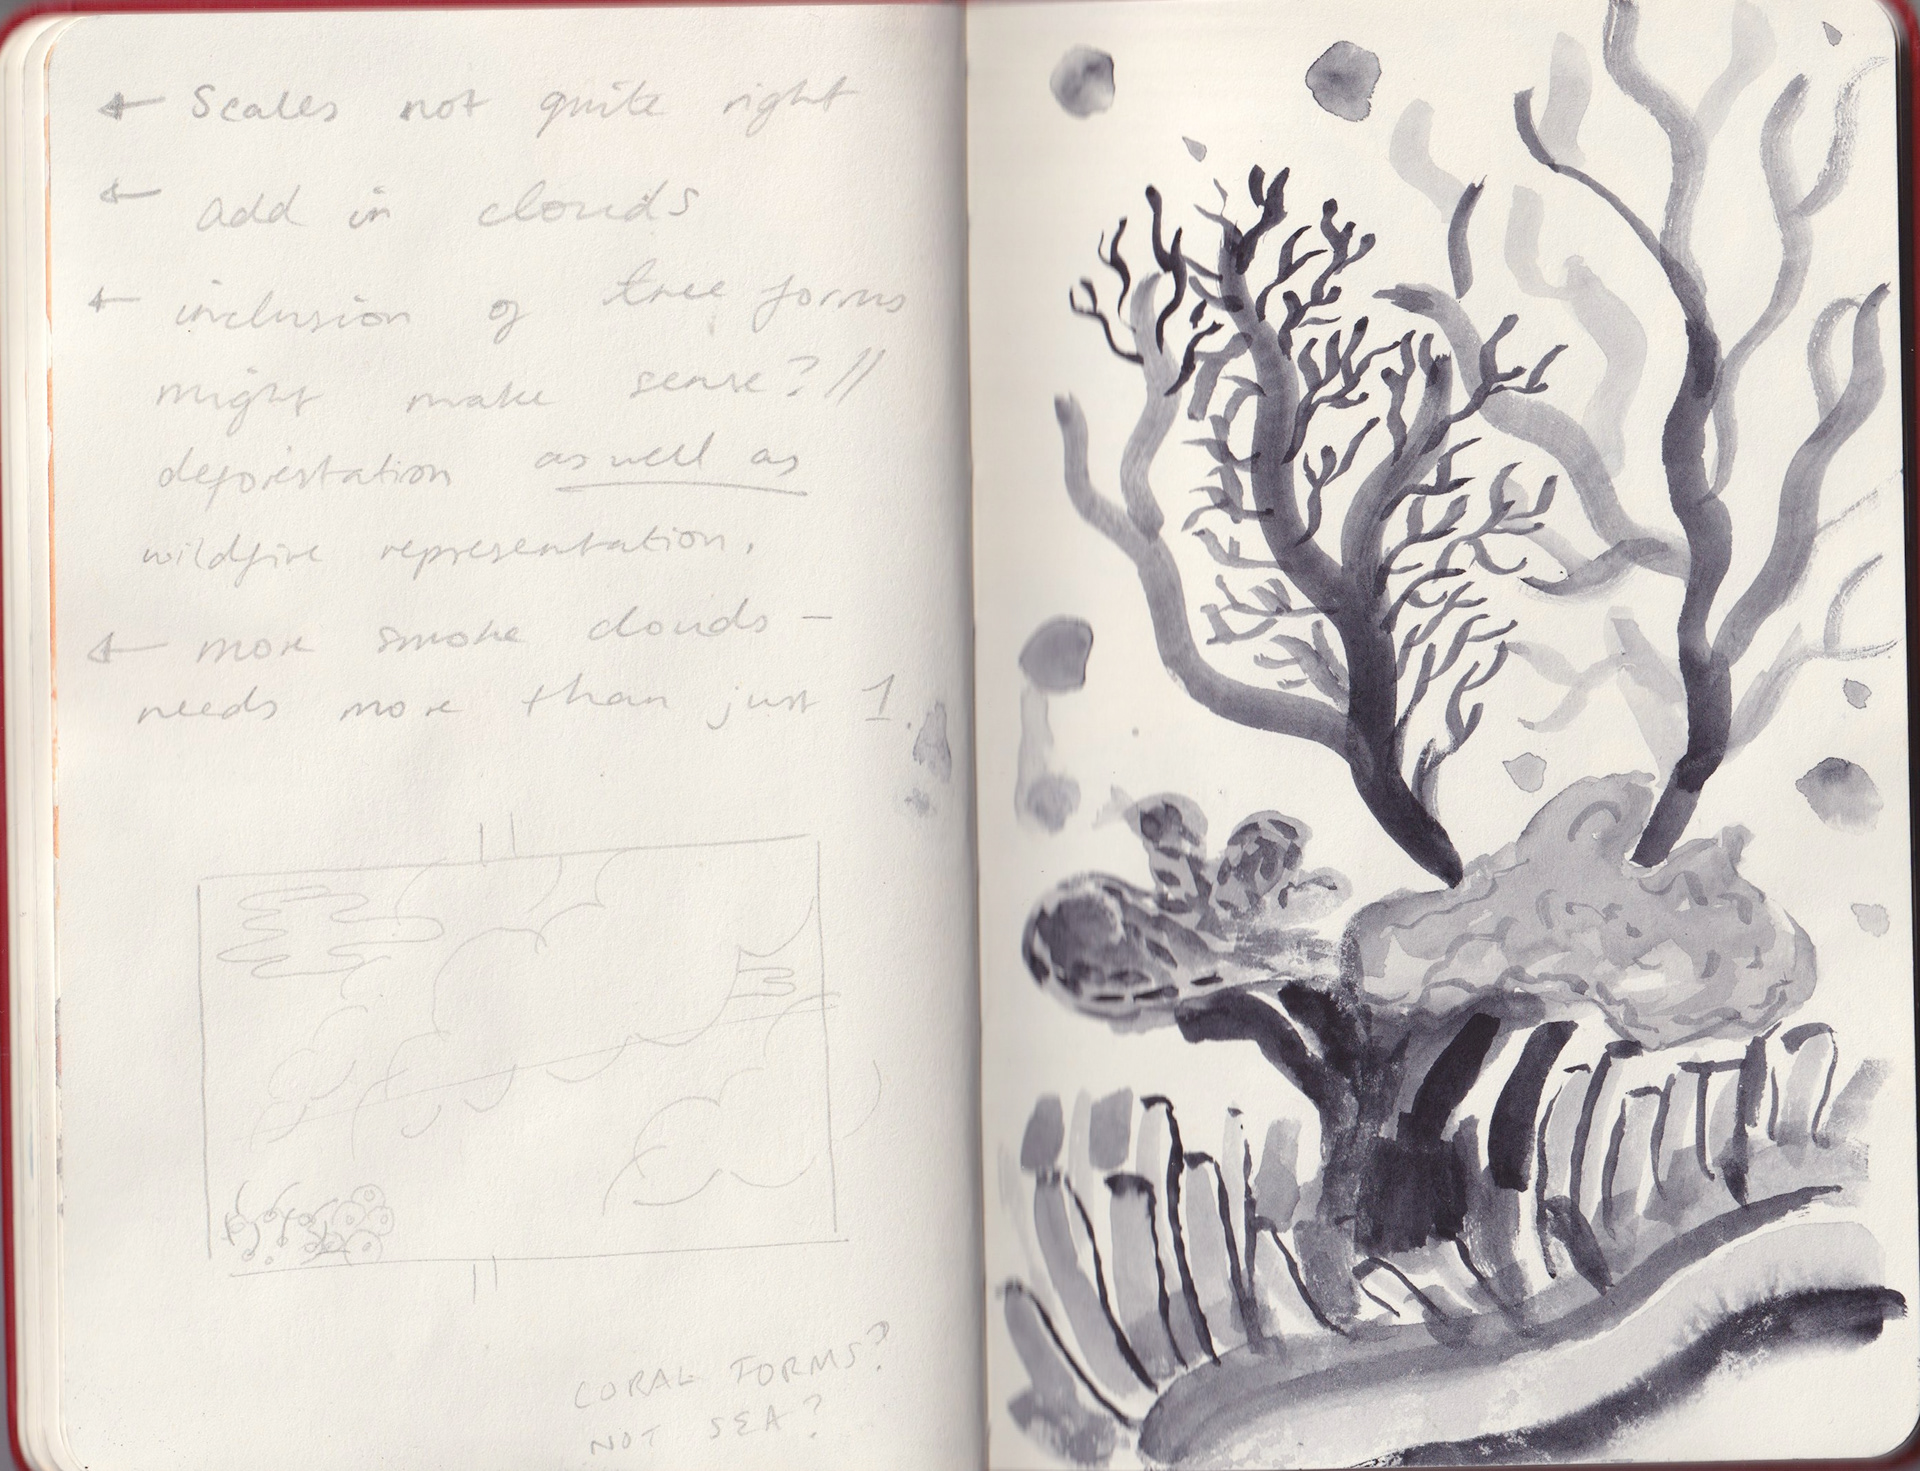 ← Scales not quite right
← add in clouds
← inclusion of tree forms
might make sense? //
deforestation as well as
wildfire representation.
← more smoke clouds –
needs more than just 1.
CORAL FORMS?
NOT SEA?